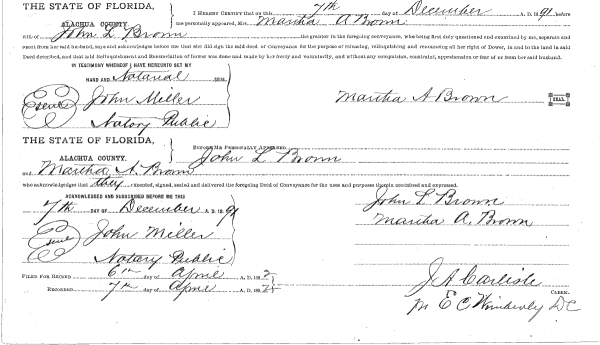 THE STATE OF FLORIDA,
ALACHUA COUNTY.
I HEREBY CERTIFY That on this 7th day of December A. D. 1891, before
me personally appeared, Mrs. Martha A Brown
wife of John L Brown the grantor in the foregoing conveyance, who being first duly questioned and examined by me, separate and
apart from her said husband, says and acknowledges before me that she did sign the said deed or Conveyance for the purpose of releasing, relinquishing and renouncing all her right of Dower, in and to the land in said
Deed described, and that said Relinquishment and Renunciation of Dower was done and made by her freely and voluntarily, and without any compulsion, constraint, apprehension or fear of or from her said husband.
IN TESTIMONY WHEREOF I HAVE HEREUNTO SET MY
HAND AND Notarial SEAL,
John Miller
Notary Public
Martha A Brown SEAL
THE STATE OF FLORIDA,
ALACHUA COUNTY.
BEFORE ME PERSONALLY APPEARED, John L Brown
and Martha A. Brown
who acknowledges that they executed, signed, sealed and delivered the foregoing Deed of Conveyance for the uses and purposes therein contained and expressed.
ACKNOWLEDGED AND SUBSCRIBED BEFORE ME THIS
7th DAY OF December A. D. 1891
John L Brown
Martha A. Brown
John Miller
Notary Public
FILED FOR RECORD 6th day of April A. D. 1892
RECORDED 7th day of April A. D. 1892
J A Carlisle CLERK.
Pr E C Wimberly DC